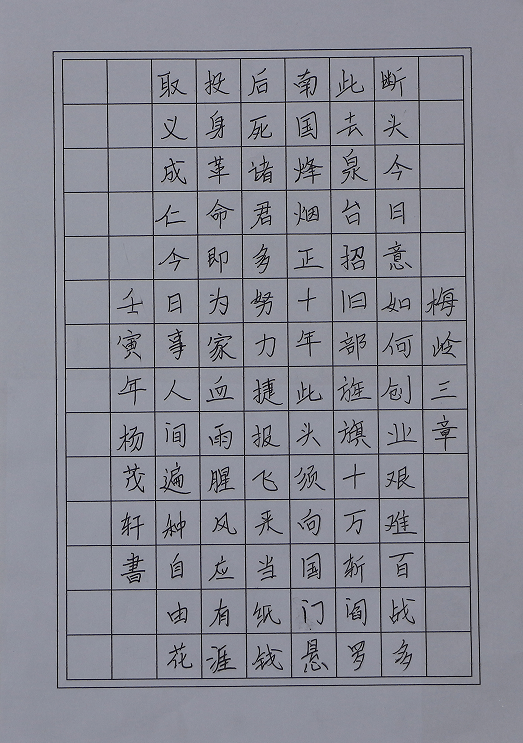 梅岭三章
断头今日意如何创业艰难百战多
此去泉台招旧部旌旗十万斩阎罗
南国烽烟正十年此头须向国门悬
后死诸君多努力捷报飞来当纸钱
投身革命即为家血雨腥风应有涯
取义成仁今日事人间遍种自由花
壬寅年杨茂轩書